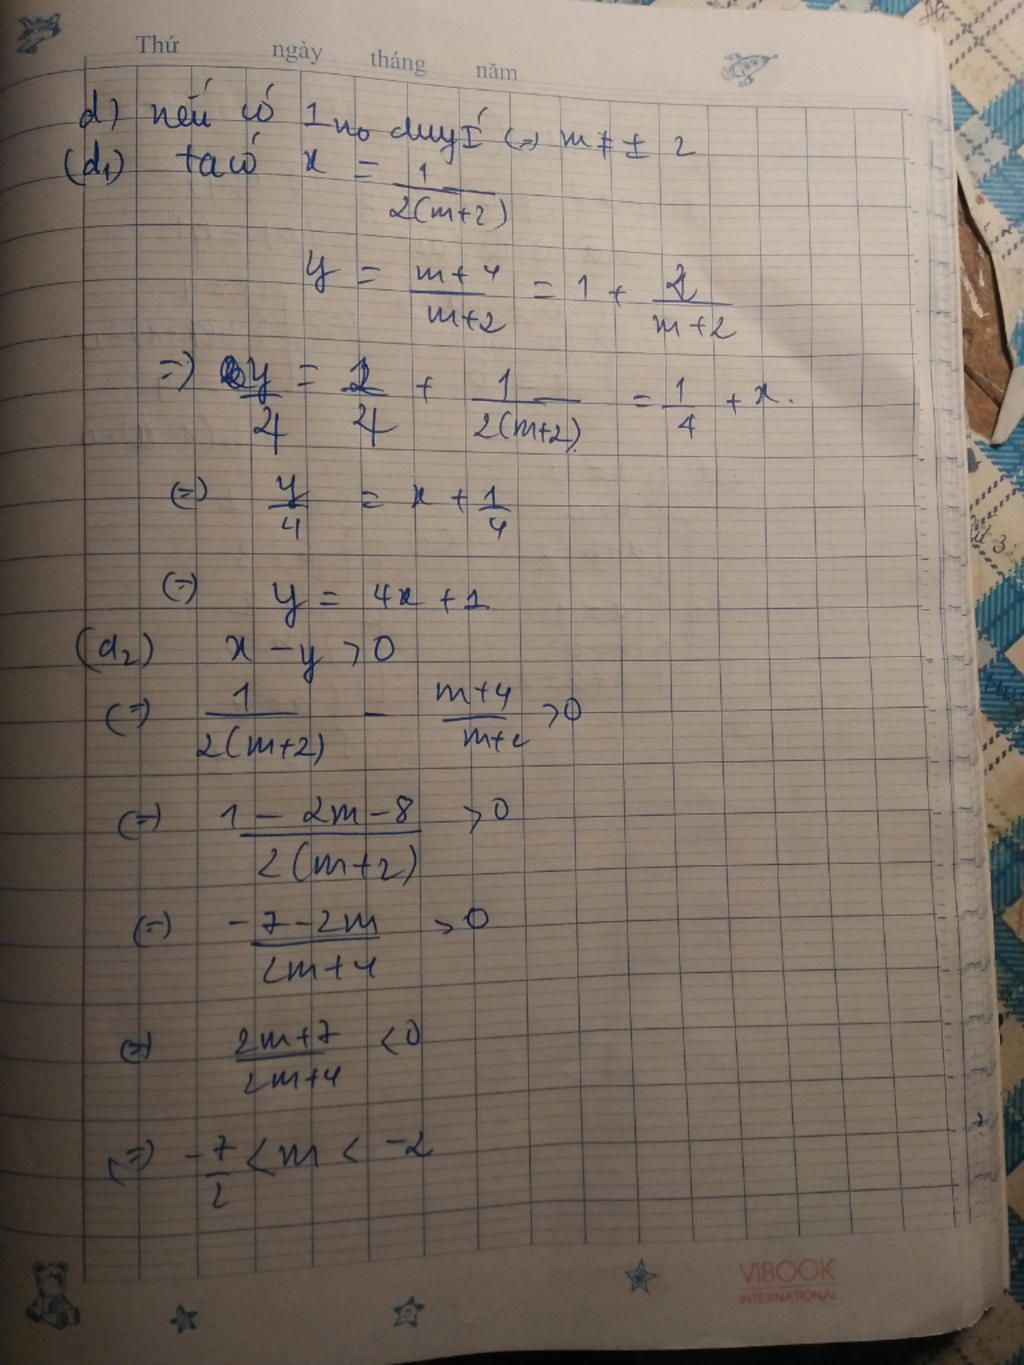 Thứ ngày tháng năm
d) nếu có 1 no duy I (=) m ≠ ± 2
(d₁) ta có x = 1/2(m+2)
y = m+4/m+2 = 1 + 2/m+2
=) y/4 = 1/4 + 1/2(m+2) = 1/4 + x.
(=) y/4 = x + 1/4
(=) y = 4x + 1
(d₂) x - y > 0
(=) 1/2(m+2) - m+4/m+2 > 0
(=) 1 - 2m - 8/2(m+2) > 0
(=) -7-2m/2m+4 > 0
(=) 2m+7/2m+4 < 0
(=) -7/2 < m < -2
VIBOOK
INTERNATIONAL